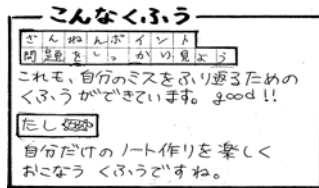 こんなくふう
ざんねんポイント
問題をしっかり見よう
これも、自分のミスをふり返るための
くふうができています。good!!
たし
自分だけのノート作りを楽しく
おこなう くふうですね。